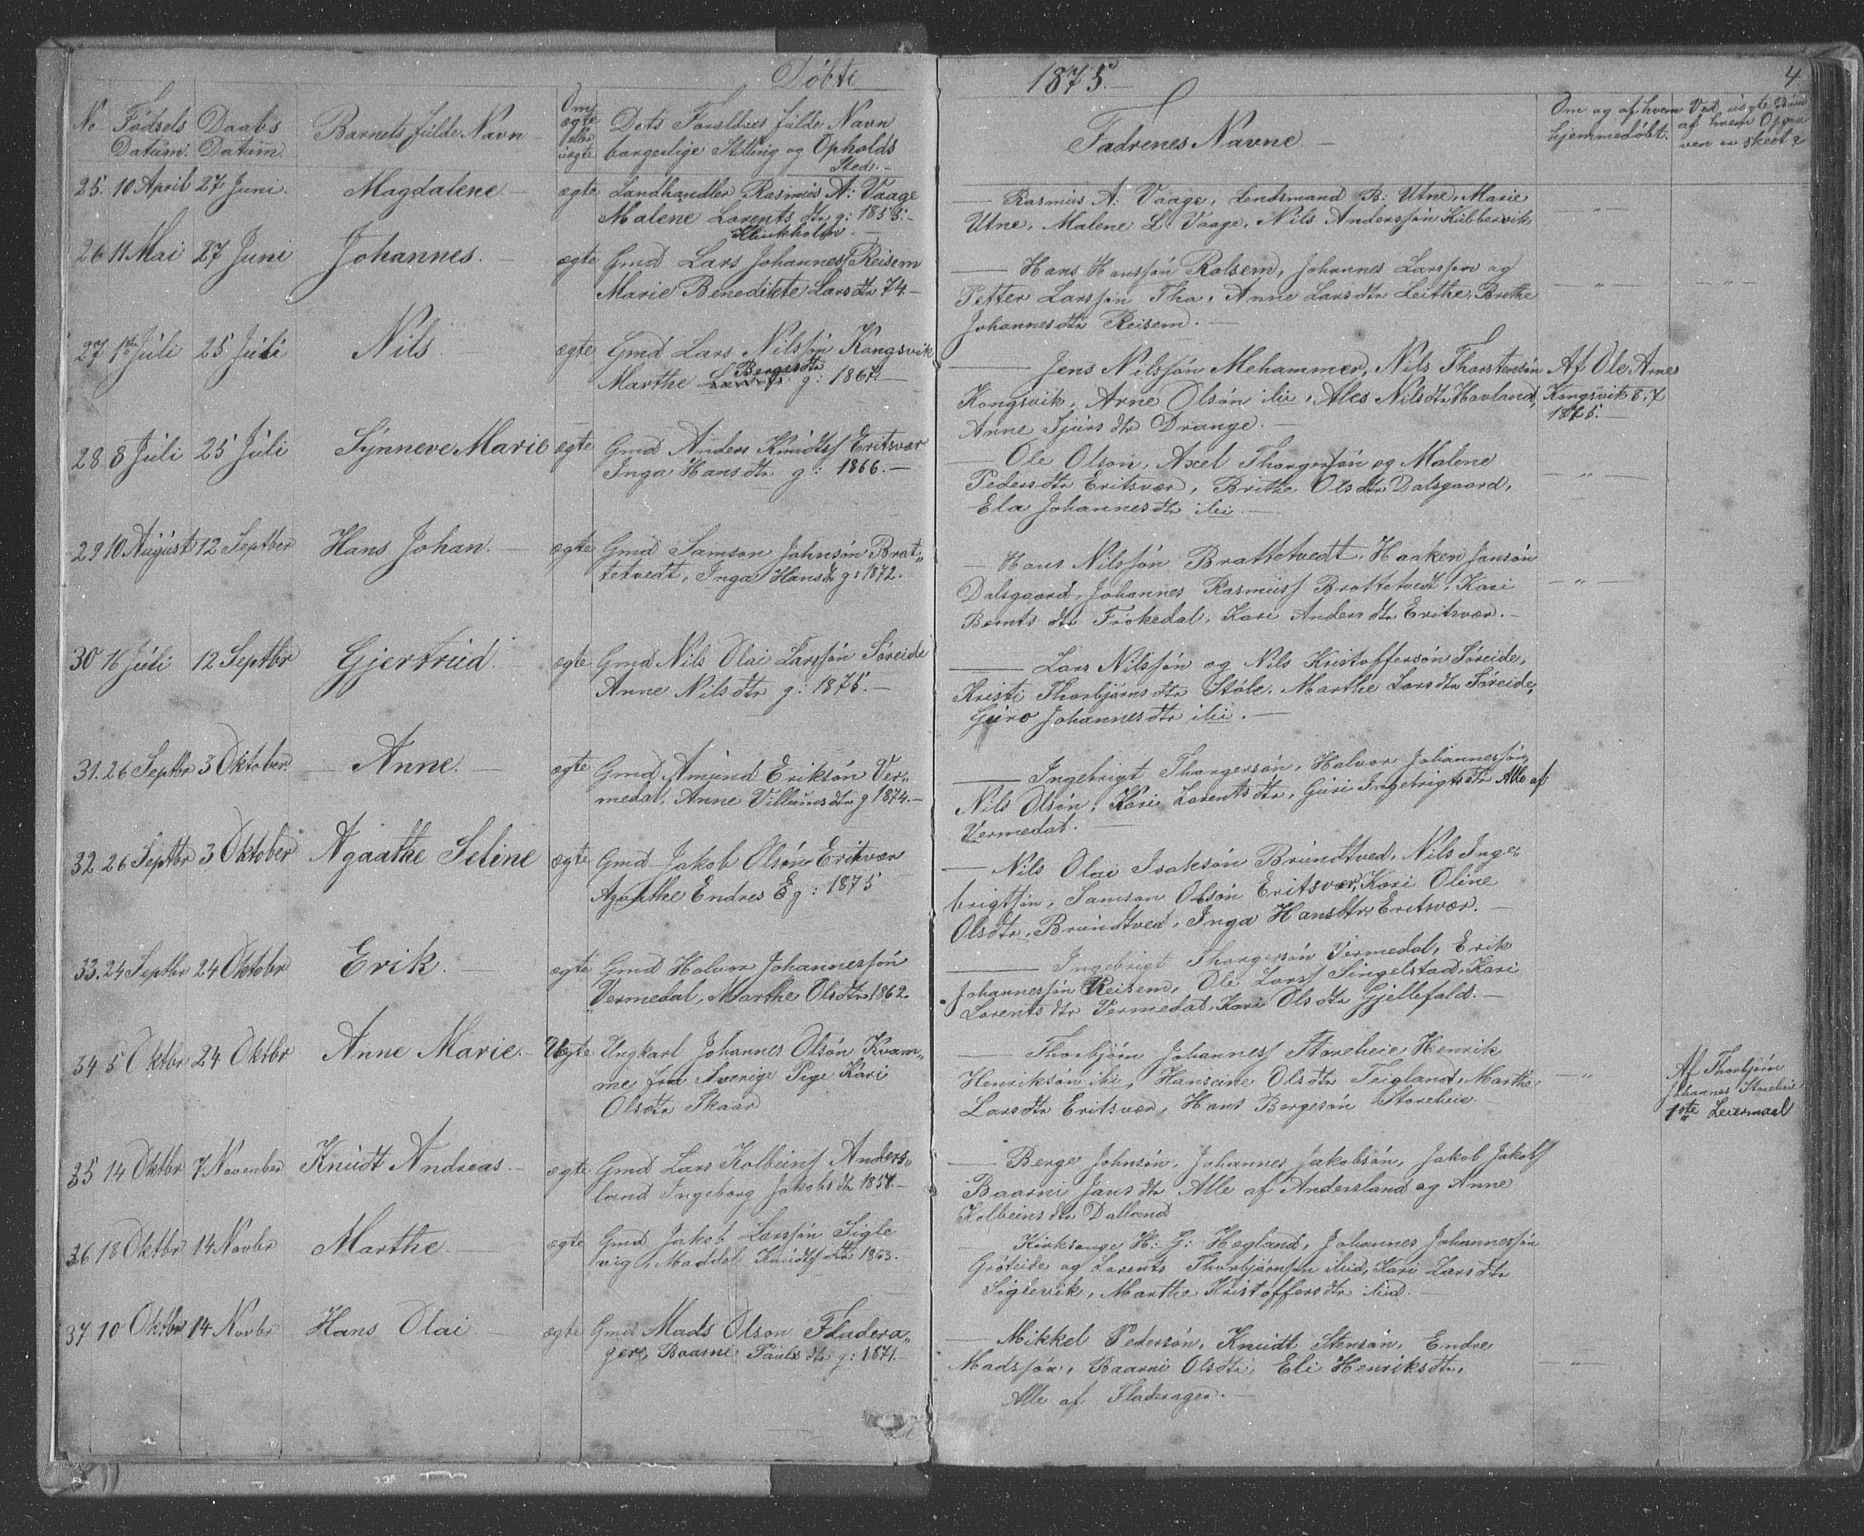 Döbte 1875. 4
No Fødsels Datum. Daabs Datum. Barnets fulde Navn Om ægte eller uægte Dets Forældres fulde Navn borgerlige Stilling og Opholds Sted. Fadrenes Navne. Om og af hvem hjemmedøbt. Ved uægte Børn af hvem Opgaven er skeet?
25. 10 April 27 Juni. Magdalene ægte Landhandler Rasmus A: Vaage
Malene Lorents dtr g: 1855.
Rasmus A: Vaage, Lendsmand B: Utne, Marie
Utne, Malene L: Vaage, Nils Anderssøn Kilbervik
26 11 Mai 27 Juni Johannes. ægte Gmd Lars Johannes Reisem
Marie Benedikte Lars dtr 74.
Hans Hanssøn Rolsem, Johannes Larssøn og
Petter Larssøn Tha, Anne Larsdtr Leithe, Brithe
Johannesdtr Reisem.
27 1ste Juli 25 Juli Nils ægte Gmd Lars Nilssøn Kongsvik
Marthe Bergesdtr g: 1867.
Jens Nilssøn Mehammer, Nils Thorstensøn
Kongsvik, Arne Olsøn ibi, Ales Nilsdtr Hovland,
Anne Sjursdtr Drange.
Af Ole Arnes
Kongsvik 8/7
1875.
28 8 Juli 25 Juli Synneve Marie ægte Gmd Anders Knudts Eritsvær
Inga Hansdtr g: 1866.
Ole Olson, Axel Thorgersøn og Malene
Pedersdtr Eritsvær, Brithe Olsdtr Dalsgaard,
Ela Johannesdtr ibi.
29 10 August 12 Septber Hans Johan. ægte Gmd Samson Johnsøn Brat„
tetvedt, Inga Hansdtr g: 1872.
Hans Nilssøn Brattetvedt, Haaken Jansøn
Dalsgaard, Johannes Rasmuss Brattetvedt, Kari
Bernts dtr Frøkedal, Kari Anders dtr Eritsvær.
30 16 Juli 12 Septbr Gjertrud. ægte Gmd Nils Olai Larssøn Søreide
Anne Nilsdtr g: 1875.
Lars Nilssøn og Nils Kristoffersøn Søreide,
Kristi Thorbjørns dtr Støle, Marthe Lars dtr Søreide,
Guro Johannesdtr ibi.
31. 26 Septbr 3 Oktober Anne. ægte Gmd Amund Eriksøn Ver„
medal, Anne Villumsdtr g 1874.
Ingebrigt Thorgersøn, Halvor Johannessøn,
Nils Olsøn, Kari Lorentsdtr, Guri Ingebrigtsdtr Alle af
Vermedal.
32. 26 Septbr 3 Oktober Agaathe Seline ægte Gmd Jakob Olsøn Eritsvær
Agaathe Endres E g: 1875
Nils Olai Isaksøn Brundtved, Nils Inge-
brigtsøn, Samson Olsøn Eritsvær, Kari Oline
Olsdtr Brundtved, Inga Hansdtr Eritsvær.
33. 24 Septbr 24 Oktobr Erik. ægte Gmd Halvor Johannessøn
Vermedal, Marthe Olsdtr 1862.
Ingebrigt Thorgersøn Vermedal, Erik
Johannessøn Reisem, Ole Larss Singelstad, Kari
Lorents dtr Vermedal, Kari Olsdtr Gjellefald.
34 5 Oktbr 24 Oktbr Anne Marie. Uægte Ungkarl Johannes Olsøn Kvam„
me fra Sverige Pige Kari
Olsdtr Skaar
Thorbjørn Johanness Storeheie Henrik
Henriksøn ibi, Hansine Olsdtr Teigland, Marthe
Larsdtr Eritsvær, Hans Bergesøn Storeheie
Af Thorbjørn
Johannes Storeheie
1ste Leiermaal
35 14 Oktbr 7 November Knudt Andreas. ægte Gmd Lars Kolbeins Anders„
land Ingeborg Jakobs dtr 1858.
Berge Johnsøn, Johannes Jakobsøn, Jakob Jakobs
Baarni Jans dtr Alle af Andersland og Anne
Kolbeins dtr Dalland
36 18 Oktbr 14 Novbr Marthe ægte Gmd Jakob Larssøn Sigle
vig, Maddel Knudtsdtr 1863.
Kirksange H: G: Hegland, Johannes Johannessøn
Grøteide og Lorents Thorbjørnsøn ibid, Kari Larsdtr
Siglevik, Marthe Kristoffersdtr ibid.
37 10 Oktbr 14 Novbr Hans Olai ægte Gmd Mads Olson Fladera„
ger, Baarni Pauls dtr g: 1871.
Mikkel Pedersøn, Knudt Stensøn, Endre
Madssøn, Baarni Olsdtr, Eli Henriksdtr,
Alle af Fladerager.